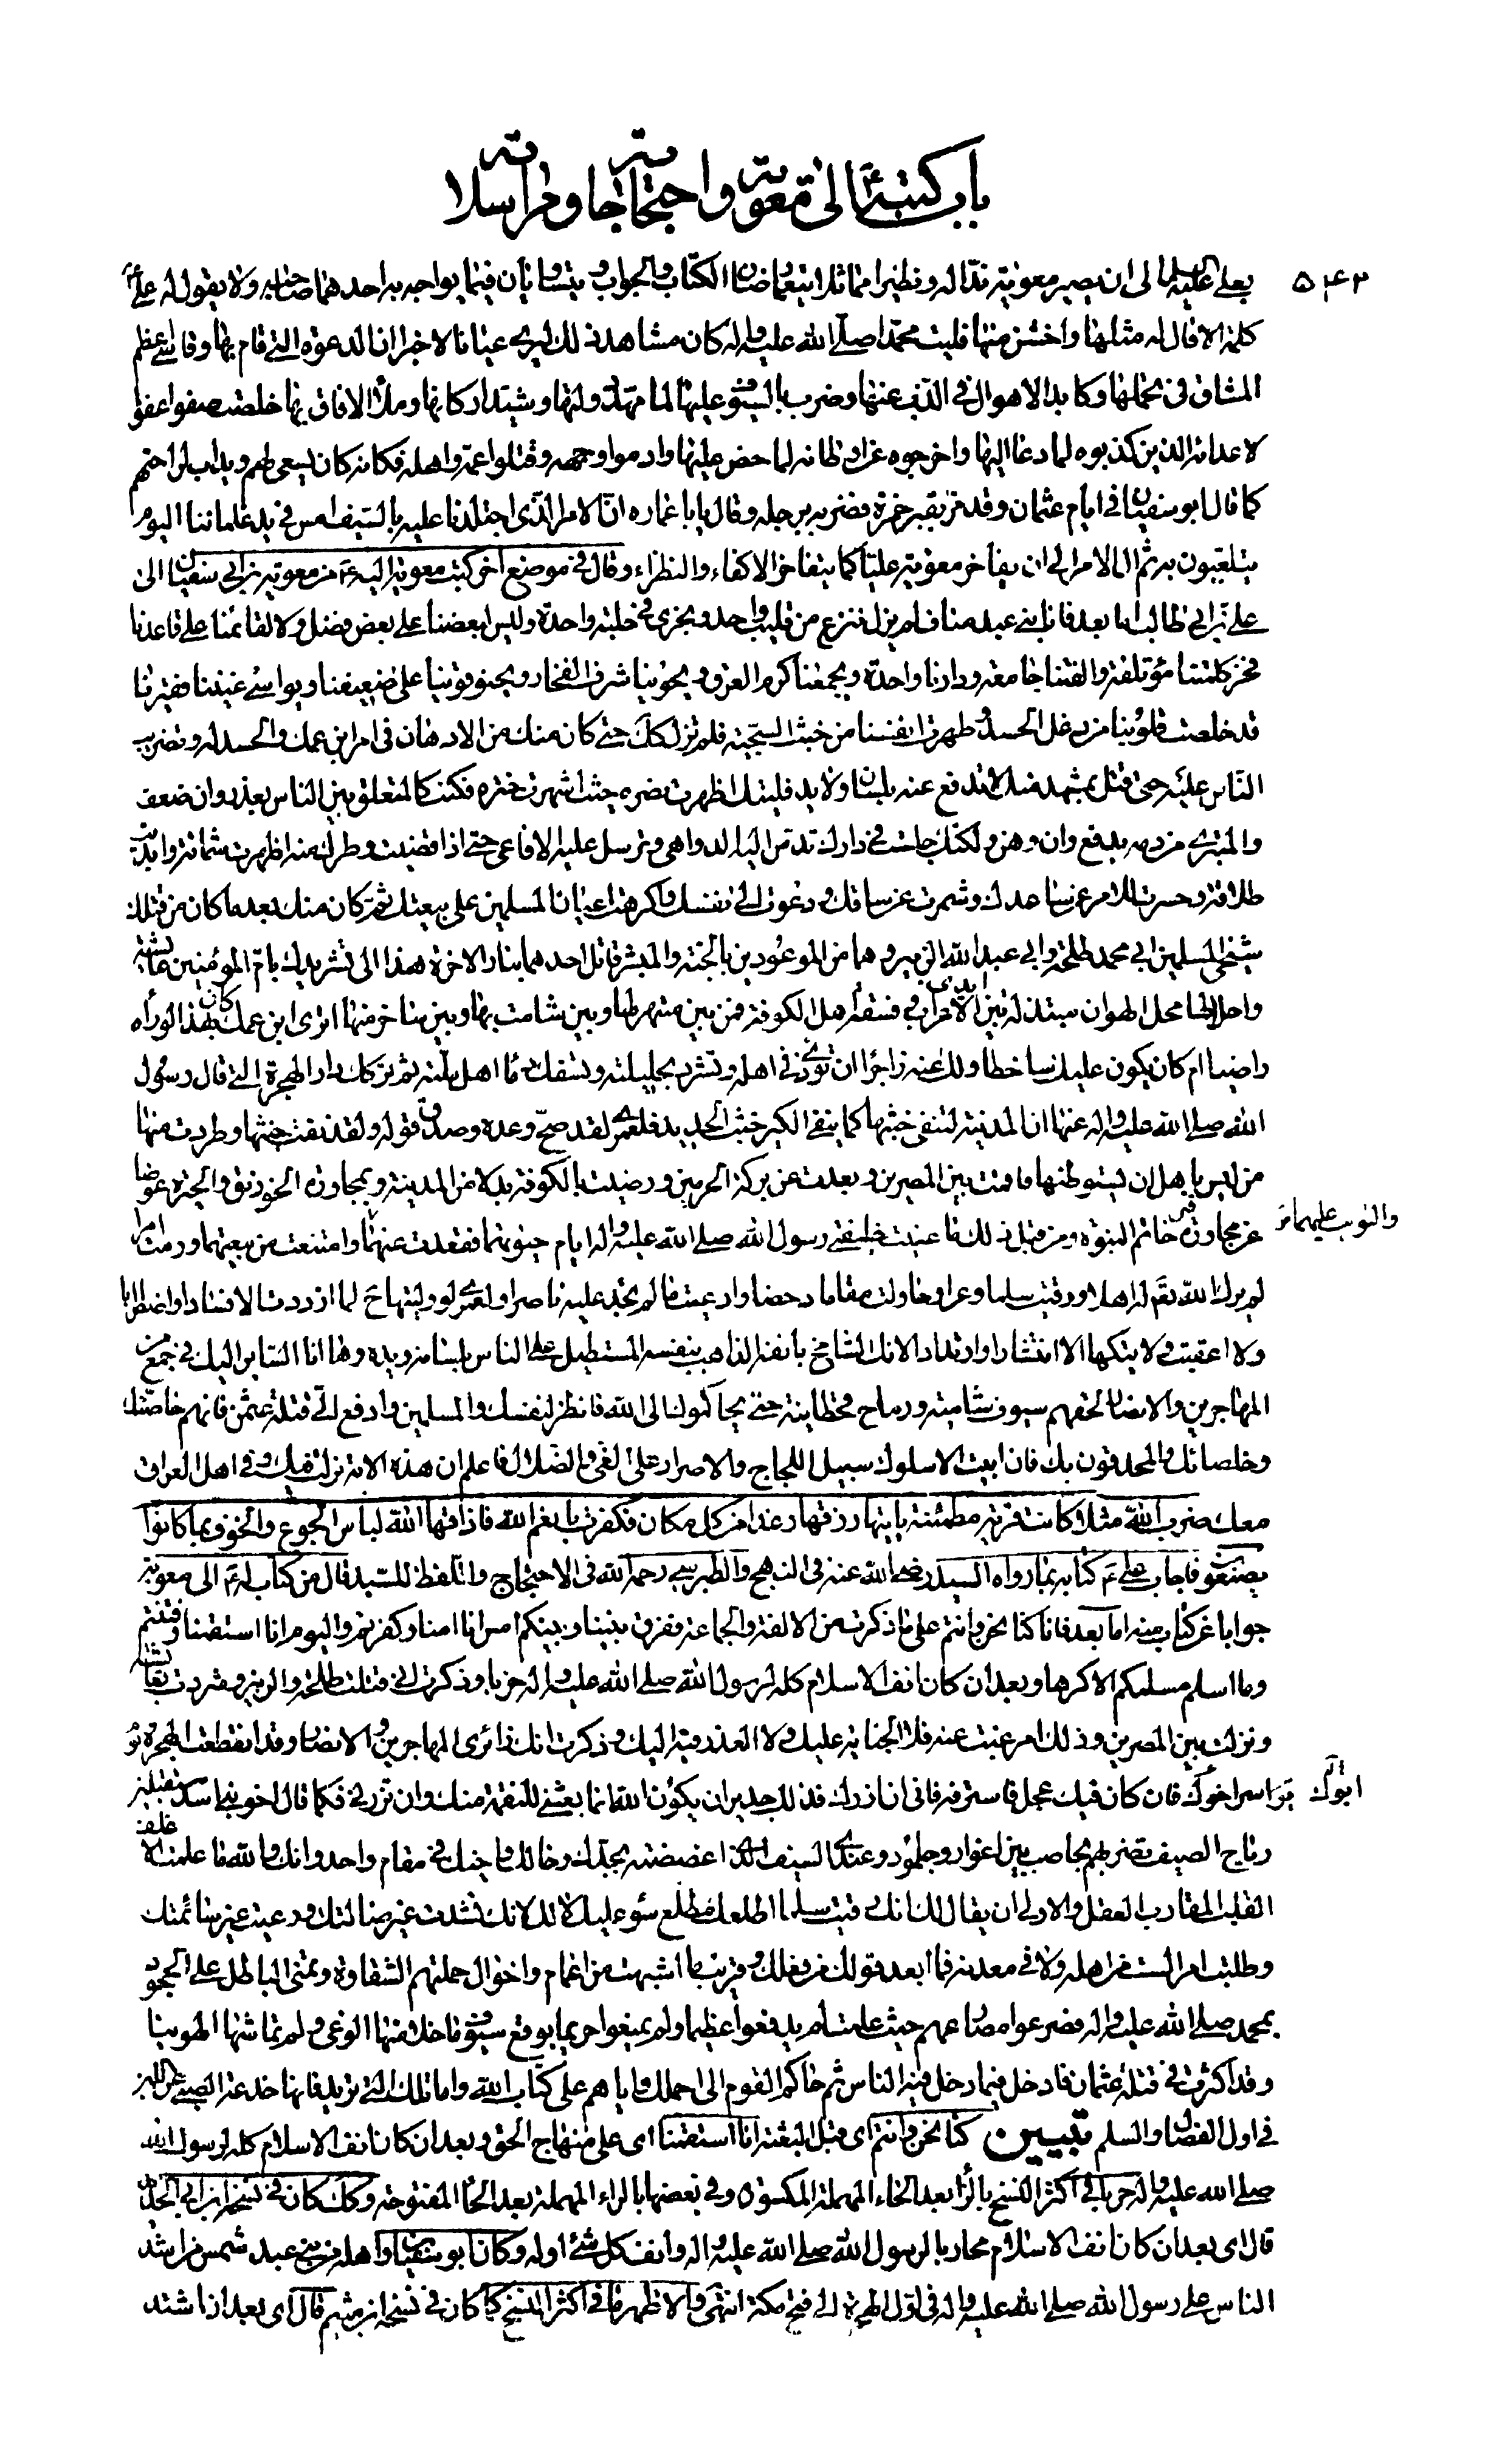 باب كتبه ع الى معوية واحتجاجاته ومراسلاته
٥٤٣
بعلي عليه السلم الى ان يصير معوية ندا له ونظيرا مماثلا يتعارضان الكتاب والجواب ويتساويان فيما يواجه به احدهما صاحبه ولا يقول له علي ع
كلمة الا قال له مثلها واخشن منها فليت محمدا صلى الله عليه واله كان مشاهد ذلك ليرى عيانا لا خبرا ان الدعوة التي قام بها وقاسى عظم
المشاق في تحملها وكابد الاهوال في الذب عنها وضرب بالسيوف عليها لما مهد دولتها وشيد اركانها وملأ الافاق بها خلصت صفوا عفوا
لاعدائه الذين كذبوه لما دعا اليها واخرجوه عن اوطانه لما حض عليها وادموا وجهه وقتلوا عمه واهله فكانه كان يسعى لهم ويدأب لراحتهم
كما قال ابو سفيان في ايام عثمان وقد مر بقبر حمزة فضربه برجله وقال يا با عماره ان الامر الذي اجتلدنا عليه بالسيف امس في يد غلماننا اليوم
يتلعبون به ثم ال الامر الى ان يفاخر معوية عليا كما يتفاخر الاكفاء والنظراء وقال في موضع اخر كتب معوية اليه ع من معوية بن ابي سفيان الى
علي بن ابي طالب اما بعد فانا بني عبد مناف لم يزل ننزع من قليب واحد ونجري في حلبة واحدة وليس لبعضنا على بعض فضل ولا لقائمنا على قاعدنا
فخر كلمتنا مؤتلفة والفتنا جامعة ودارنا واحدة ويجمعنا كرم العرق ويحوينا شرف الفخار ويحنو قوينا على ضعيفنا ويواسي غنينا فقيرنا
قد خلصت قلوبنا من دغل الحسد وطهرت انفسنا من خبث السجية فلم نزل كذلك حتى كان منك من الادهان في امر ابن عمك والحسد له وتضريب
الناس عليه حتى قتل بمشهد منك لا تدفع عنه بلسان ولا يد فليتك اظهرت نصره حيث اشهرت ختره فكنت كالمتعلق بين الناس بعذر وان ضعف
والمتبري من دمه بدفع وان وهن ولكنك جلست في دارك تدس اليه الدواهي وترسل عليه الافاعي حتى اذا قضيت وطرك منه اظهرت شماتة وابديت
طلاقة وحسرت للامر عن ساعدك وشمرت عن ساقك ودعوت الى نفسك واكرهت اعيان المسلمين على بيعتك ثم كان منك بعد ما كان من قتلك
شيخي المسلمين ابي محمد طلحة وابي عبد الله الزبير وهما من الموعودين بالجنة والمبشر قاتل احدهما بنار الاخرة هذا الى تشريدك بام المؤمنين عايشة
واحلالها محل الهوان مبتذلة بين ايدي الاعراب وفسقة اهل الكوفة فمن بين منتهر لها وبين شامت بها وبين ساخر منها اترى ابن عمك كان بهذا لو راه
راضيا ام كان يكون عليك ساخطا ولك عنه زاجرا ان تؤذي في اهله وتشرد بحليلته وتسفك دماء اهل ملته ثم تركك دار الهجرة التي قال رسول
الله صلى الله عليه واله عنها ان المدينة لتنفي خبثها كما ينفي الكير خبث الحديد فلعمري لقد صح وعده وصدق قوله ولقد نفت خبثها وطردت منها
من ليس باهل ان يستوطنها فاقمت بين المصرين وبعدت عن بركة الحرمين ورضيت بالكوفة بدلا من المدينة وبمجاورة الخورنق والحيرة عوضا
عن مجاورة قبر خاتم النبوة ومن قبل ذلك ما عيبت خليفتي رسول الله صلى الله عليه واله ايام حيوتهما فقعدت عنهما وامتنعت من بيعتهما ورمت امرا
والتويت عليهما م
لم يرك الله تعم له اهلا ورقيت سلما وعرا وحاولت مقاما دحضا وادعيت ما لم تجد عليه ناصرا ولعمري لو وليتها ح لما ازددت الا فسادا واضطرابا
ولا اعقبت ولايتكها الا انتشارا وارتدادا لانك الشامخ بانفه الذاهب بنفسه المستطيل على الناس بلسانه ويده وها انا السائر اليك في جمع من
المهاجرين والانصار تحفهم سيوف شامية ورماح قحطانية حتى يحاكموك الى الله فانظر لنفسك والمسلمين وادفع الي قتلة عثمن فانهم خاصتك
وخلصائك والمحدقون بك فان ابيت الا سلوك سبيل اللجاج والاصرار على الغي والضلال فاعلم ان هذه الاية نزلت فيك وفي اهل العراق
معك ضرب الله مثلا كانت قرية مطمئنة ياتيها رزقها رغدا من كل مكان فكفرت بانعم الله فاذاقها الله لباس الجوع والخوف بما كانوا
يصنعون فاجاب علي ع كتابه بما رواه السيد رضي الله عنه في النهج والطبرسي رحمه الله في الاحتجاج واللفظ للسيد قال من كتاب له ع الى معوية
جوابا عن كتاب منه اما بعد فانا كنا نحن وانتم على ما ذكرت من الالفة والجماعة ففرق بيننا وبينكم امس انا امنا وكفرتم واليوم انا استقمنا وفتنتم
وما اسلم مسلمكم الا كرها وبعد ان كان انف الاسلام كله لرسول الله صلى الله عليه واله حزبا وذكرت اني قتلت طلحة والزبير وشردت بعايشة
ونزلت بين المصرين وذلك امر غبت عنه فلا الجناية عليك ولا العذر فيه اليك وذكرت انك زائري في المهاجرين والانصار وقد انقطعت الهجرة يوم
اسر اخوك فان كان فيك عجل فاسترفه فاني ان ازرك فذلك جدير ان يكون الله انما بعثني للنقمة منك وان تزرني فكما قال اخو بني اسد مستقبلين
ابوك
رياح الصيف تضربهم بحاصب بين اغوار وجلمود وعندي السيف الذي اعضضته بجدك وخالك واخيك في مقام واحد وانك والله ما علمت الاغلف
القلب المقارب العقل والاولى ان يقال لك انك رقيت سلما اطلعك مطلع سوء عليك لا لك لانك نشدت غير ضالتك ورعيت غير سائمتك
وطلبت امرا لست من اهله ولا في معدنه فما ابعد قولك من فعلك وقريب ما اشبهت من اعمام واخوال حملتهم الشقاوة وتمنى الباطل على الجحود
بمحمد صلى الله عليه واله فصرعوا مصارعهم حيث علمت لم يدفعوا عظيما ولم يمنعوا حريما بوقع سيوف ما خلا منها الوغى ولم تماشها الهوينا
وقد اكثرت في قتلة عثمان فادخل فيما دخل فيه الناس ثم حاكم القوم الى احملك واياهم على كتاب الله واما تلك التي تريد فانها خدعة الصبي عن اللبن
في اول الفصال والسلم تبيين كنا نحن وانتم اي قبل البعثة انا استقمنا اي على منهاج الحق وبعد ان كان انف الاسلام كله لرسول الله
صلى الله عليه واله حزبا في اكثر النسخ بالزاء بعد الحاء المهملة المكسورة وفي بعضها بالراء المهملة بعد الحاء المفتوحة وكذلك كان في نسخة ابن ابي الحديد
قال اي بعد ان كان انف الاسلام محاربا لرسول الله صلى الله عليه واله وانف كل شئ اوله وكان ابو سفيان واهله من بني عبد شمس من اشد
الناس على رسول الله صلى الله عليه واله في اول الهجرة الى فتح مكة انتهى والاظهر ما في اكثر النسخ كما كان في نسخة ابن ميثم قال اي بعد اذ اشتد